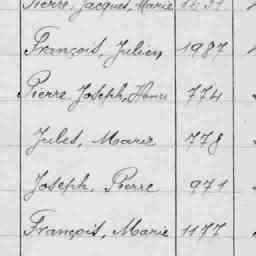 Pierre, Jacques, Marie
François, Julien 1987
Pierre Joseph, Henri 774
Jules, Marie 778
Joseph, Pierre 971
François, Marie 1177